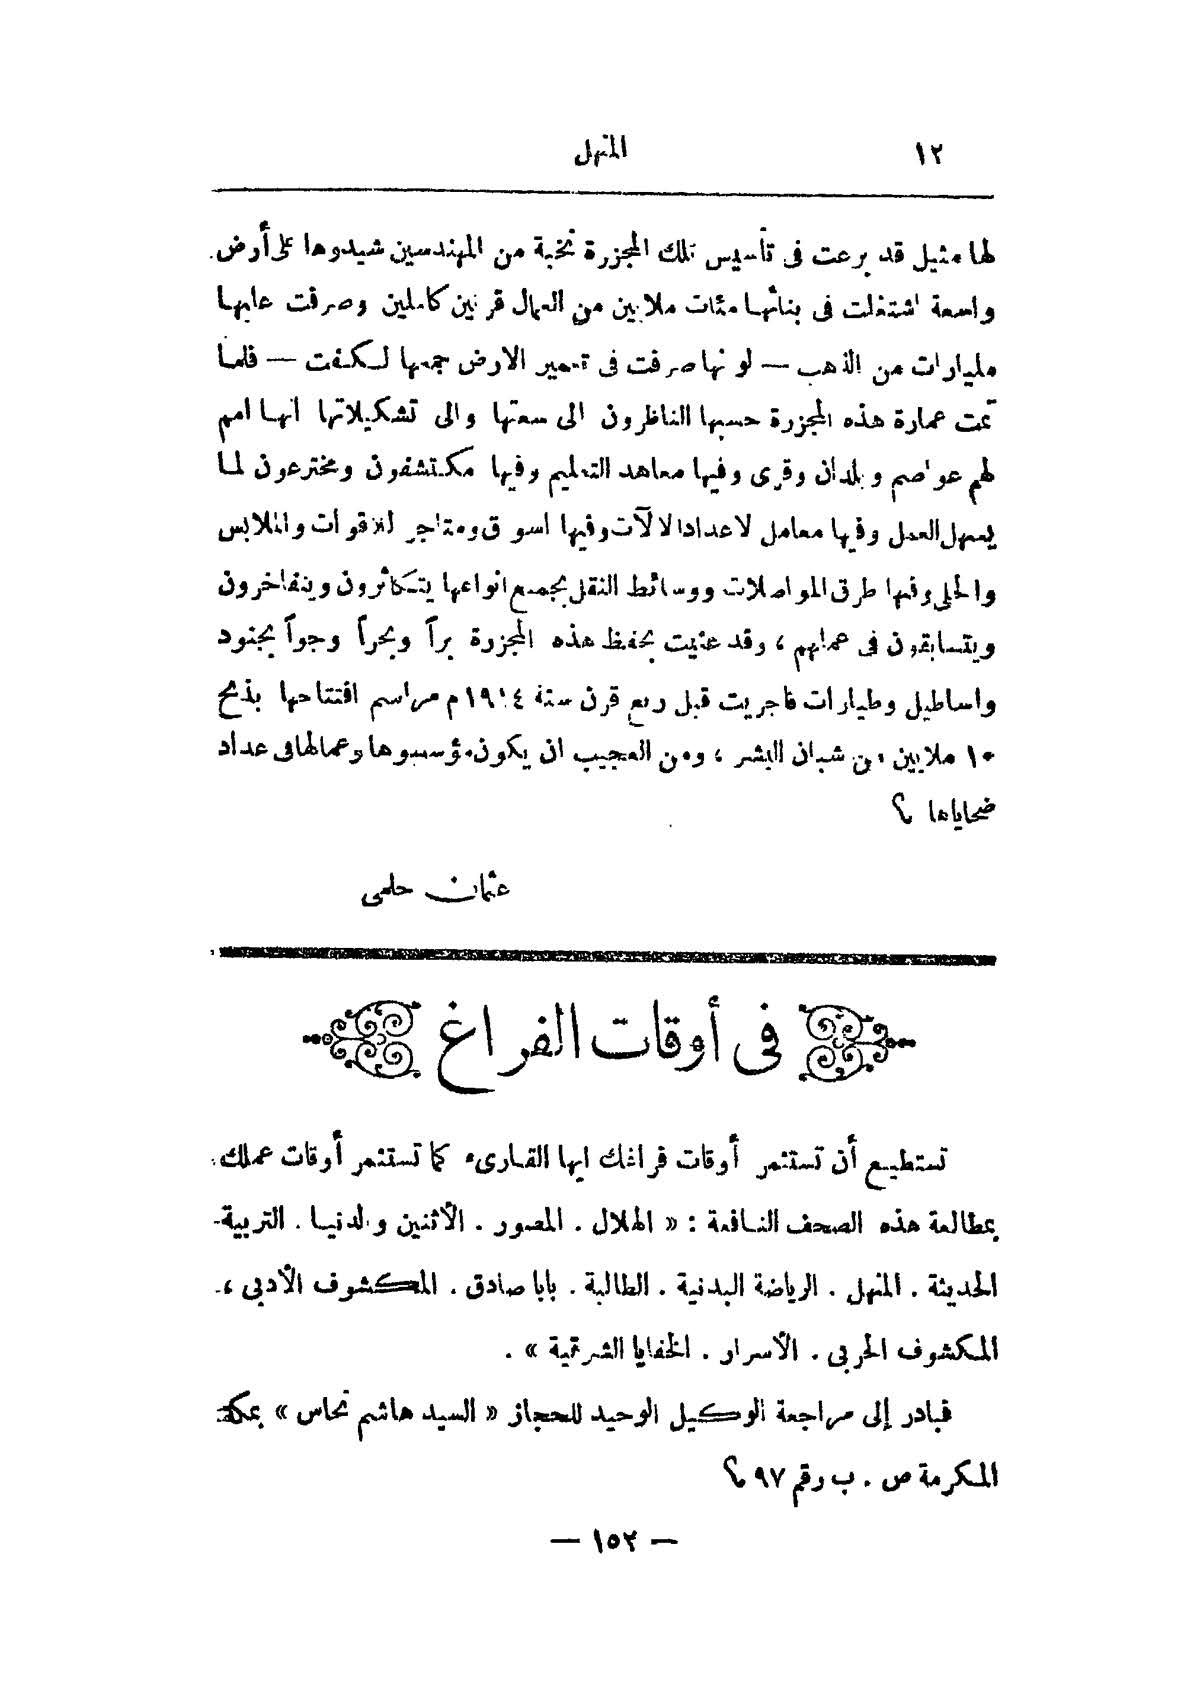 ١٢
المنهل
لها مثيل قد برعت فى تأسيس تلك المجزرة نخبة من المهندسين شيدوها على أرض
واسعة اشتغلت فى بنائها مئات ملايين من العمال قرنين كاملين وصرفت عليها
مليارات من الذهب — لو نها صرفت فى تعمير الارض جميعها لكفت — فلما
تمت عمارة هذه المجزرة حسبها الناظرون الى سعتها والى تشكيلاتها انها امم
لهم عواصم وبلدان وقرى وفيها معاهد التعليم وفيها مكتشفون ومخترعون لما
يسهل العمل وفيها معامل لاعداد الآلات وفيها اسواق ومتاجر للاقوات والملابس
والحلى وفيها طرق المواصلات ووسائط النقل بجميع انواعها يتكاثرون ويتفاخرون
ويتسابقون فى عملهم ، وقد عنيت بحفظ هذه المجزرة براً وبحراً وجواً بجنود
واساطيل وطيارات فاجريت قبل ربع قرن سنة ١٩١٤م مراسم افتتاحها بذبح
١٠ ملايين من شبان البشر ، ومن العجيب ان يكون مؤسسوها وعمالها فى عداد
ضحاياها ؟
عثمان حلمى
فى أوقات الفراغ
تستطيع أن تستثمر أوقات فراغك ايها القارىء كما تستثمر أوقات عملك
بمطالعة هذه الصحف النافعة : « الهلال . المصور . الأثنين والدنيا . التربية
الحديثة . المنهل . الرياضة البدنية . الطالبة . بابا صادق . المكشوف الأدبى ،
المكشوف الحربى . الأسرار . الخفايا الشرقية » .
فبادر إلى مراجعة الوكيل الوحيد للحجاز « السيد هاشم نحاس » بمكة
المكرمة ص . ب رقم ٩٧ ؟
— ١٥٢ —